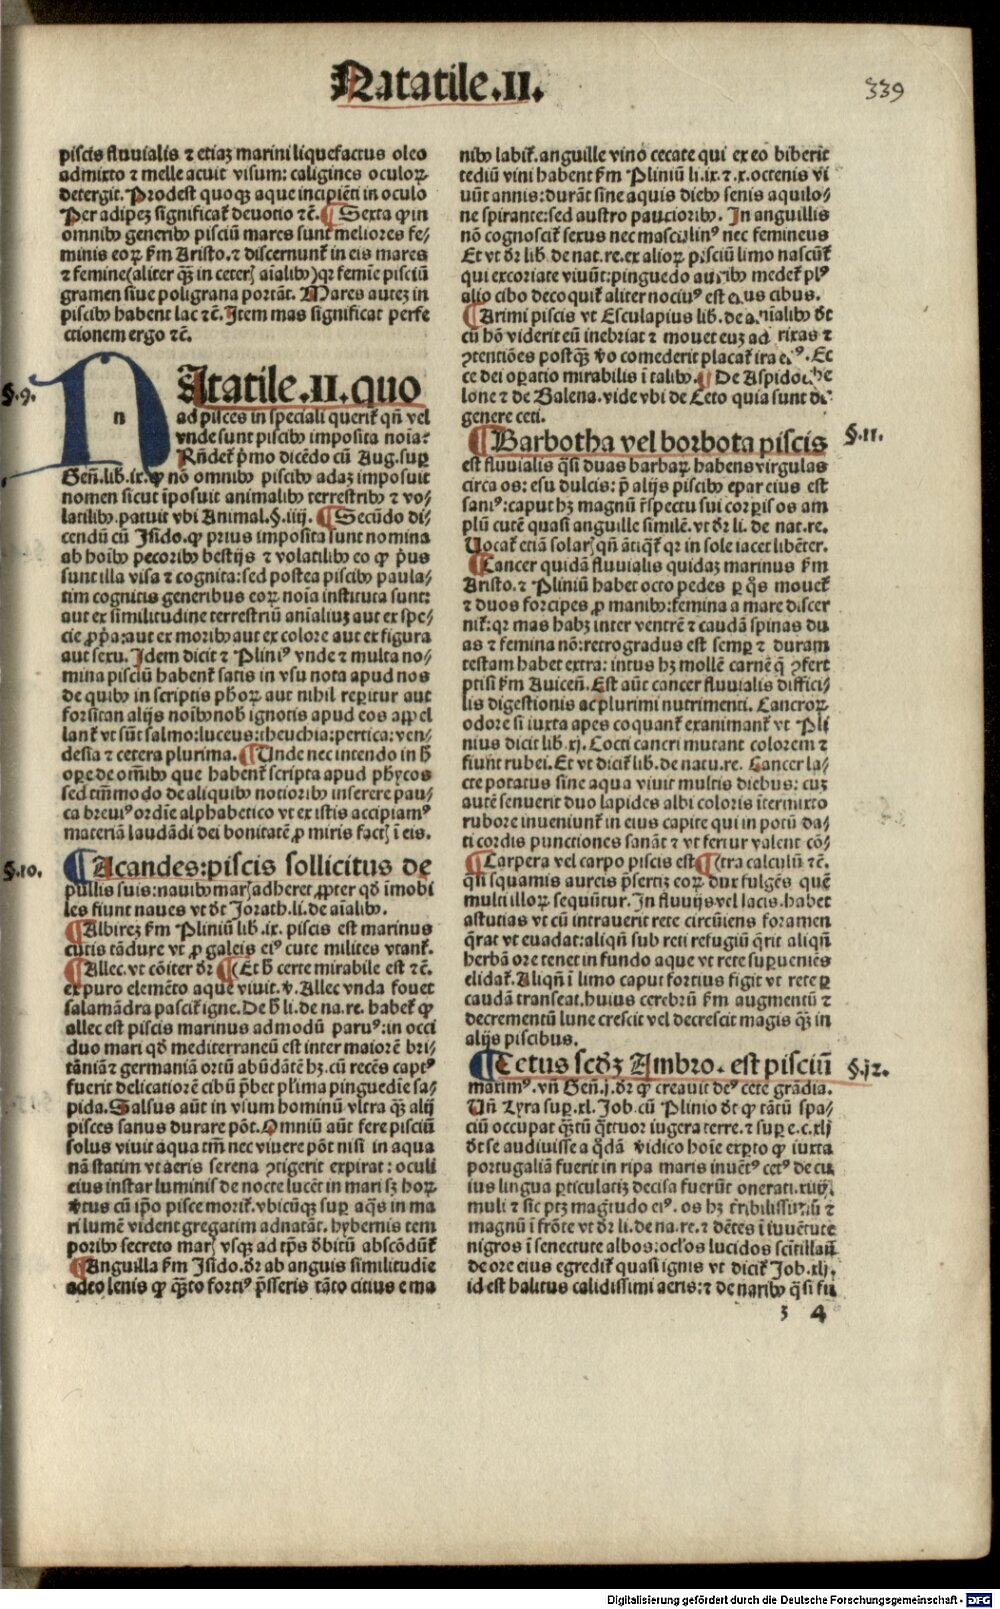 Natatile.II.
339
piscis fluuialis ⁊ etiaꝫ marini liquefactus oleo
admixto ⁊ melle acuit visum: caligines oculoꝝ
detergit. Prodest quoqꝫ aque incipiẽti in oculo
Per adipeꝫ significat᷑ deuotio ⁊c̃. ¶ Sexta ꝙ in
omnibꝰ generibꝰ pisciũ mares sunt meliores fe⸗
minis eoꝝ ẜm Aristo. ⁊ discernunt᷑ in eis mares
⁊ femine (aliter qꝫ̃ in ceteꝝ aĩalibꝰ) qꝛ femĩe pisciũ
gramen siue poligrana portãt. Mares auteꝫ in
piscibꝰ habent lac ⁊c̃. Item mas significat perfe
ctionem ergo ⁊c̃.
§.9.
n
Atatile.II.quo
ad pisces in speciali querit᷑ qñ vel
vnde sunt piscibꝰ imposita noĩa:
Rñdet᷑ p̃mo dicẽdo cũ Aug. suꝑ
Geñ.lib.ix.ꝙ nõ omnibꝰ piscibꝰ adaꝫ imposuit
nomen sicut ĩposuit animalibꝰ terrestribꝰ ⁊ vo⸗
latilibꝰ.patuit vbi Animal.§.iiij. ¶ Secũdo di⸗
cendũ cũ Isido.ꝙ prius imposita sunt nomina
ab hoĩbꝰ pecoribꝰ bestijs ⁊ volatilibꝰ eo ꝙ p̃us
sunt illa visa ⁊ cognita: sed postea piscibꝰ paula⸗
tim cognitis generibus eoꝝ noĩa instituta sunt:
aut ex similitudine terrestriũ aĩaliuꝫ aut ex spe⸗
cie ꝓp̃a: aut ex moribꝰ aut ex colore aut ex figura
aut sexu. Idem dicit ⁊ Pliniꝰ vnde ⁊ multa no⸗
mina pisciũ habent᷑ satis in vsu nota apud nos
de quibꝰ in scriptis ph̃oꝝ aut nihil reperitur aut
forsitan alijs noĩbꝰ nob̃ ignotis apud eos appel
lant᷑ vt sũt salmo: luceus: theuchia: pertica: ven⸗
dessia ⁊ cetera plurima. ¶ Unde nec intendo in h̃
oꝑe de om̃ibꝰ que habent᷑ scripta apud ph̃ycos
sed tm̃modo de aliquibꝰ notioribꝰ inserere pau⸗
ca breuiꝰ ordĩe alphabetico vt ex istis accipiamꝰ
materiã laudãdi dei bonitatẽ ꝓ miris factꝭ ĩ eis.
§.10.
¶ Acandes: piscis sollicitus de
pullis suis: nauibꝰ marꝭ adheret ꝓpter qd̃ ĩmobi
les fiunt naues vt d̃t Jorath.li.de aĩalibꝰ.
¶ Albireꝫ ẜm Pliniũ lib.ix. piscis est marinus
cutis tã dure vt ꝓ galeis eiꝰ cute milites vtant᷑.
¶ Allec.vt cõiter d̃r ¶ (Et h̃ certe mirabile est ⁊c̃.
ex puro elemẽto aque viuit. ꝟ. Allec vnda fouet
salamãdra pascit᷑ igne. De h̃ li.de na.re. habet᷑ ꝙ
allec est piscis marinus admodũ paruꝰ: in occi
duo mari qd̃ mediterraneũ est inter maiorẽ bri⸗
tãniã ⁊ germaniã ortũ abũdãtẽ hꝫ. cũ recẽs captꝰ
fuerit delicatiorẽ cibũ p̃bet pl̃ima pinguedĩe sa⸗
pida. Salsus aũt in vsum hominũ vltra qꝫ̃ alij
pisces sanus durare põt. Omniũ aũt fere pisciũ
solus viuit aqua tm̃ nec viuere põt nisi in aqua
nã statim vt aeris serena ↄtigerit expirat: oculi
eius instar luminis de nocte lucẽt in mari sꝫ hoꝝ
ꝟtus cũ ip̃o pisce morit᷑. vbicũqꝫ suꝑ aq̃s in ma
ri lumẽ vident gregatim adnatãt. hybernis tem
poribꝰ secreto marꝭ vsqꝫ ad tp̃s d̃bitũ abscõdũt᷑
¶ Anguilla ẜm Isido. d̃r ab anguis similitudĩe
adeo lenis ꝙ qꝫ̃to fortiꝰ p̃sseris tãto citius e ma
nibꝰ labit᷑.anguille vino cecate qui ex eo biberit
tediũ vini habent ẜm Pliniũ li.ix.⁊.x.octenis vi
uũt annis: durãt sine aquis diebꝰ senis aquilo⸗
ne spirante: sed austro paucioribꝰ. In anguillis
nõ cognoscit᷑ sexus nec masculinꝰ nec femineus
Et vt d̃r lib.de nat.re.ex alioꝝ pisciũ limo nascũt᷑
qui excoriate viuũt: pinguedo auribꝰ medet᷑ plꝰ
alio cibo decoquit᷑ aliter nociuꝰ est eius cibus.
¶ Arimi piscis vt Esculapius lib.de aĩalibꝰ d̃t
cũ hõ viderit eũ inebriat ⁊ mouet euꝫ ad rixas ⁊
ↄtentiões postqꝫ̃ ꝟo comederit placat᷑ ira eiꝰ. Ec
ce dei oꝑatio mirabilis ĩ talibꝰ. ¶ De Aspidoche
lone ⁊ de Balena.vide vbi de Ceto quia sunt de
genere ceti.
¶ Barbotha vel borbota piscis
§.11.
est fluuialis q̃si duas barbaꝝ habens virgulas
circa os: esu dulcis: p̃ alijs piscibꝰ epar eius est
saniꝰ: caput hꝫ magnũ r̃spectu sui corꝑis os am
plũ cutẽ quasi anguille similẽ. vt d̃r li. de nat.re.
Uocat᷑ etiã solarꝭ qñ ãtiq̃t᷑ qꝛ in sole iacet libẽter.
¶ Cancer quidã fluuialis quidaꝫ marinus ẜm
Aristo.⁊ Pliniũ habet octo pedes ꝑ q̃s mouet᷑
⁊ duos forcipes ꝓ manibꝰ: femina a mare discer
nit᷑: qꝛ mas habꝫ inter ventrẽ ⁊ caudã spinas du
as ⁊ femina nõ: retrogradus est semꝑ ⁊ duram
testam habet extra: intus hꝫ mollẽ carnẽ q̃ ↄfert
ptisi ẜm Auiceñ. Est aũt cancer fluuialis diffici⸗
lis digestionis ac plurimi nutrimenti. Cancroꝝ
odore si iuxta apes coquant᷑ exanimant᷑ vt Pli
nius dicit lib.xj. Cocti cancri mutant colorem ⁊
fiunt rubei. Et vt dicit᷑ lib. de natu.re. Cancer la⸗
cte potatus sine aqua viuit multis diebus: cuꝫ
autẽ senuerit duo lapides albi coloris ĩtermixto
rubore inueniunt᷑ in eius capite qui in potũ da⸗
ti cordis punctiones sanãt ⁊ vt fertur valent cõ⸗
¶ Carpera vel carpo piscis est ¶ (tra calculũ ⁊c̃.
q̃si squamis aureis p̃sertiꝫ eoꝝ dux fulgẽs quẽ
multi illoꝝ sequũtur. In fluuijs vel lacis. habet
astutias vt cũ intrauerit rete circũiens foramen
q̃rat vt euadat: aliqñ sub reti refugiũ q̃rit aliqñ
herbã ore tenet in fundo aque vt rete suꝑueniẽs
elidat᷑. Aliqñ ĩ limo caput fortius figit vt rete ꝑ
caudã transeat.huius cerebrũ ẜm augmentũ ⁊
decrementũ lune crescit vel decrescit magis qꝫ̃ in
alijs piscibus.
¶ Cetus scd̃ꝫ Ambro. est pisciũ
§.12.
marimꝰ. vñ Geñ.j.d̃r ꝙ creauit deꝰ cete grãdia.
Uñ Lyra suꝑ.xl. Job.cũ Plinio d̃t ꝙ tãtũ spa⸗
ciũ occupat qꝫ̃tũ q̃ttuor iugera terre.⁊ suꝑ e.c.xlj
d̃t se audiuisse a q̃dã ꝟidico hoĩe exꝑto ꝙ iuxta
portugaliã fuerit in ripa maris inuẽtꝰ cetꝰ de cu
ius lingua ꝑticulatiꝫ decisa fuerũt onerati.xiiij
muli ⁊ sic ptꝫ magĩtudo eiꝰ. os hꝫ t̃ribilissimũ ⁊
magnũ ĩ frõte vt d̃r li.de na.re.⁊ dẽtes ĩ iuuẽtute
nigros ĩ senectute albos: ocl̃os lucidos scĩtillãũ
de ore eius egredit᷑ quasi ignis vt dicit᷑ Job.xlj.
id est halitus calidissimi aeris: ⁊ de naribꝰ q̃si fu
3 4
Digitalisierung gefördert durch die Deutsche Forschungsgemeinschaft - DFG